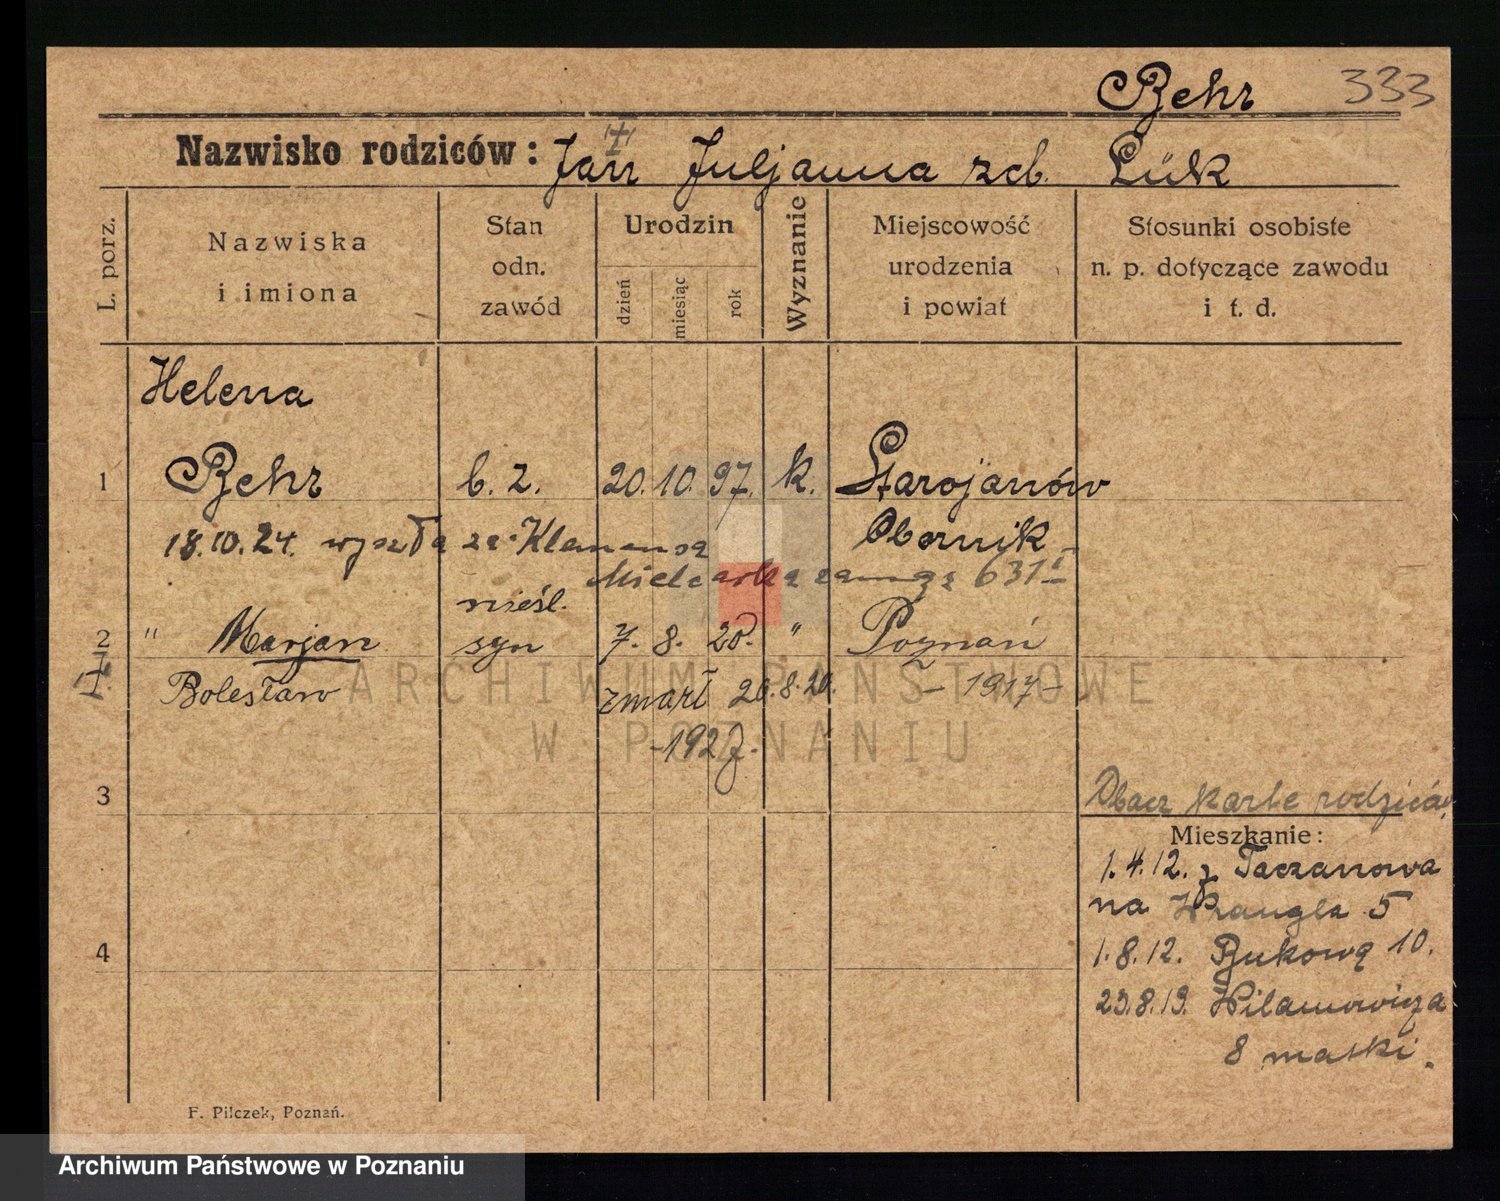 Behr 333
Nazwisko rodziców: Jan Juljanna zcb. Lük
L. porz.
Nazwiska
i imiona
Stan
odn.
zawód
Urodzin
dzień
miesiąc
rok
Wyznanie
Miejscowość
urodzenia
i powiat
Stosunki osobiste
n. p. dotyczące zawodu
i t. d.
Helena
1 Behr b. z. 20. 10. 97. k. Starojanów
18.10.24. wyszła za Klemensa Obornik
631
nieśl.
2 " Marjan syn 7. 8. 20. " Poznań
Bolesław zmarł 20.8.20. - 1917 -
- 1927.
3
Obacz karte rodziców
Mieszkanie:
1.4.12. z Taczanowa
na Wrangla 5
4
1.8.12. Bukową 10.
23.8.19. Wilamowicza
8 matki.
F. Pilczek, Poznań.
ARCHIWUM PAŃSTWOWE
W POZNANIU
Archiwum Państwowe w Poznaniu